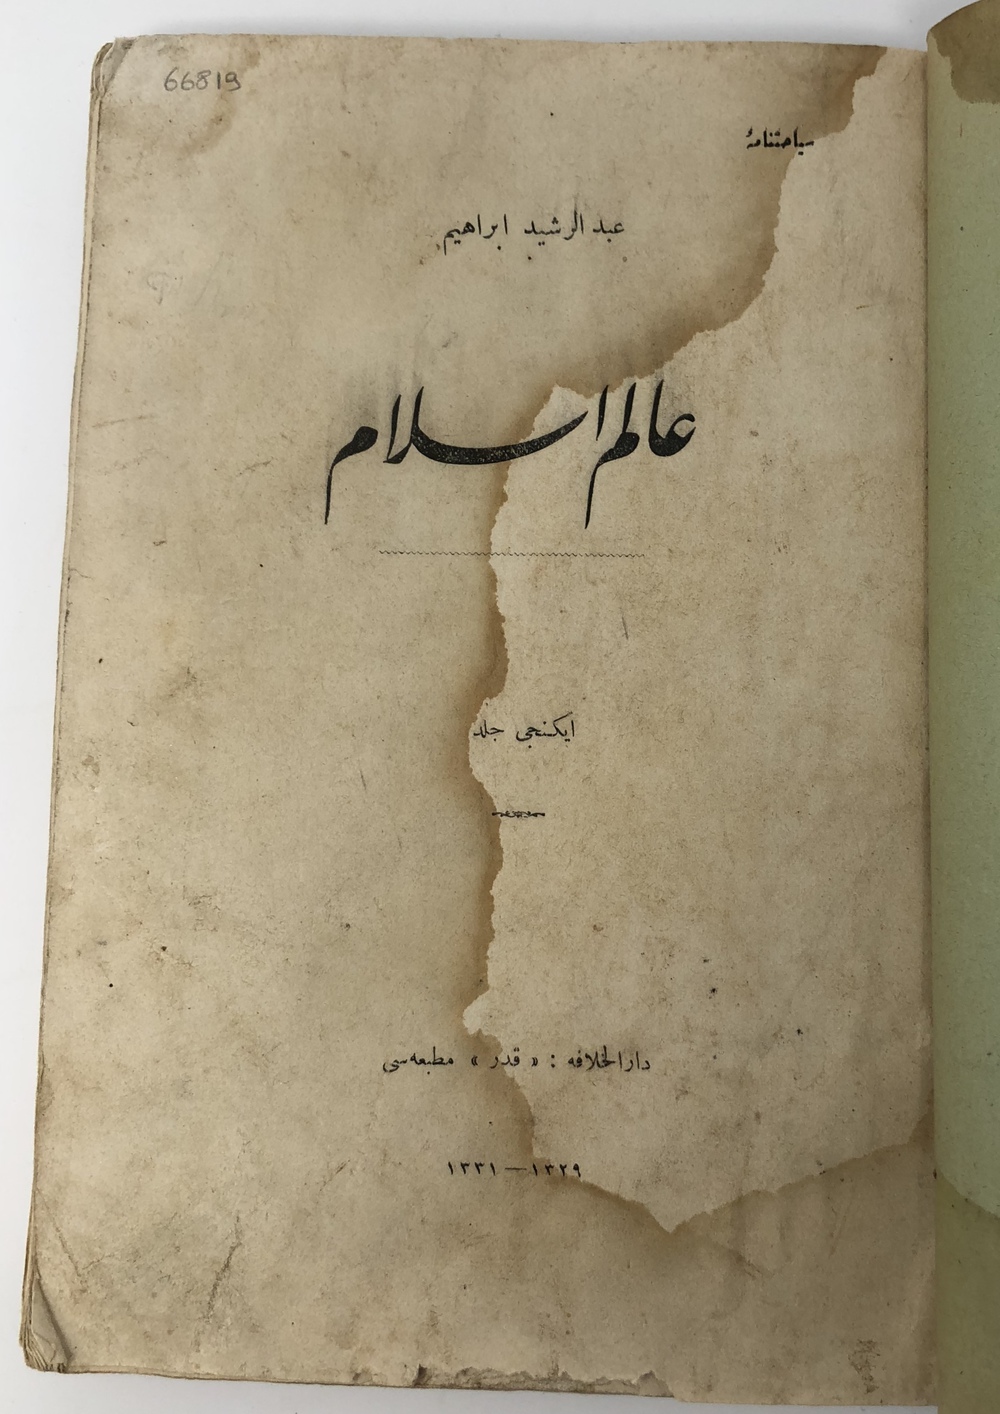 66819
سیاحتنامهٔ
عبد الرشید ابراهیم
عالم اسلام
ایکنجی جلد
دارالخلافه : « قدر » مطبعه‌سی
۱۳۲۹—۱۳۳۱